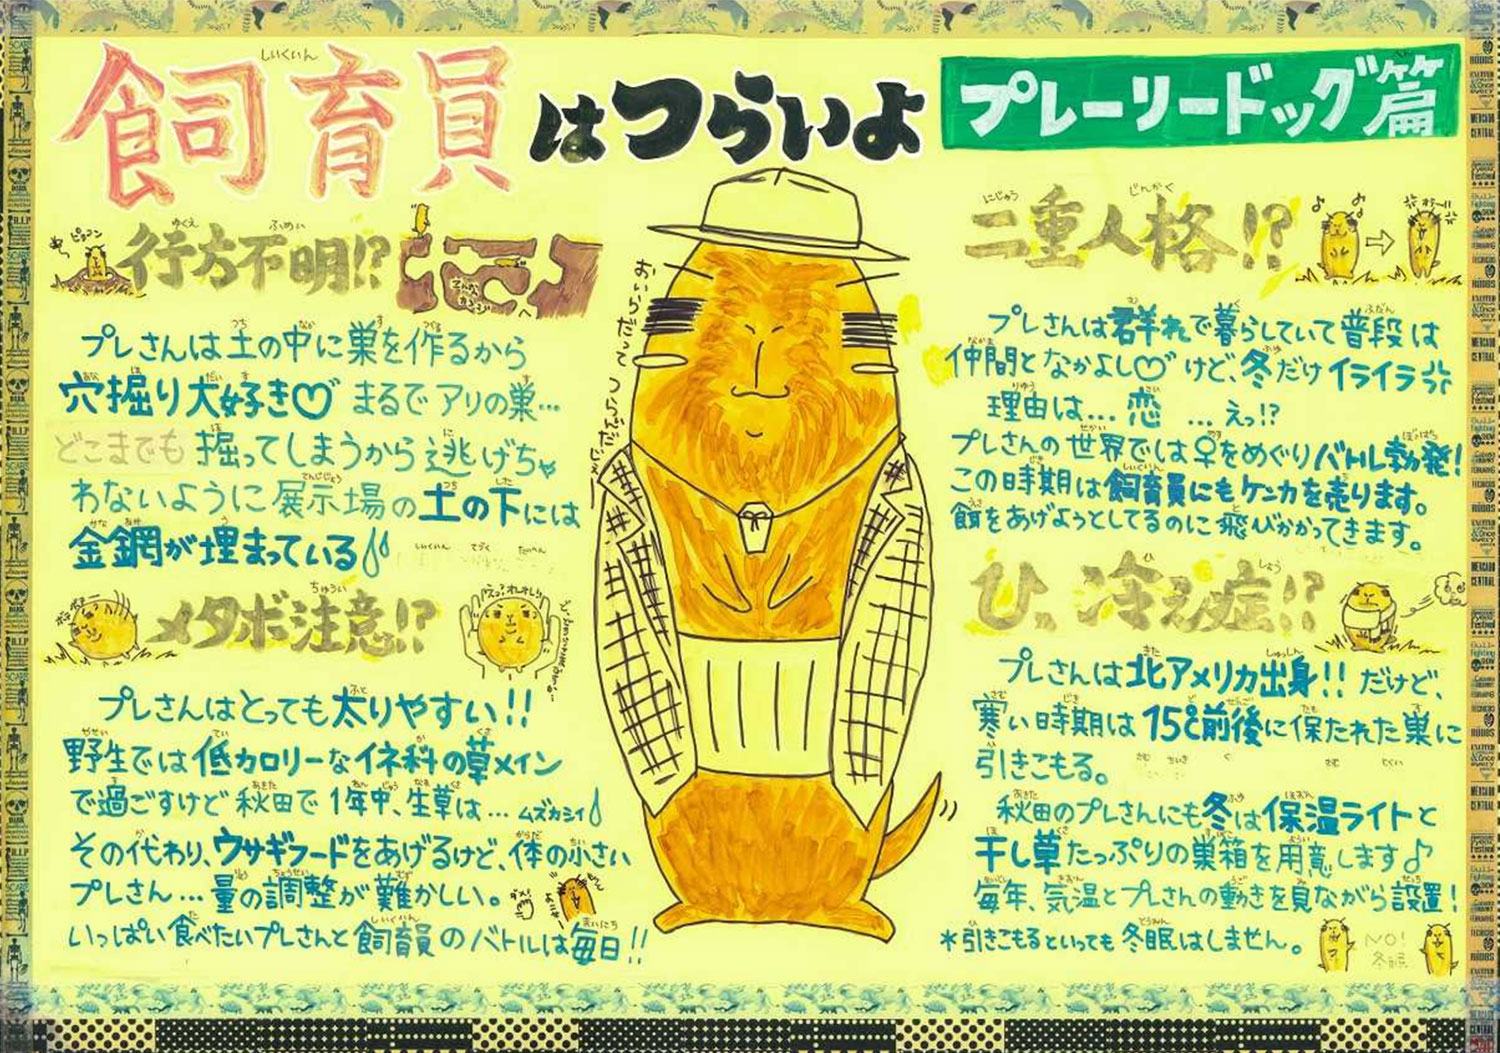 飼育員はつらいよ
しいくいん
プレーリードッグ篇
行方不明!?
ゆくえ ふめい
プレさんは土の中に巣を作るから
穴掘り大好き♡ まるでアリの巣…
どこまでも掘ってしまうから逃げちゃ
わないように展示場の土の下には
金網が埋まっている
メタボ注意!?
ちゅうい
プレさんはとっても太りやすい!!
野生では低カロリーなイネ科の草メイン
で過ごすけど秋田で1年中、生草は…ムズカシイ
その代わり、ウサギフードをあげるけど、体の小さい
プレさん…量の調整が難かしい。
いっぱい食べたいプレさんと飼育員のバトルは毎日!!
おいらだって つらいんだじぇー
二重人格!?
にじゅう じんかく
プレさんは群れで暮らしていて普段は
仲間となかよし♡けど、冬だけイライラ
理由は…恋…えっ!?
プレさんの世界では♀をめぐりバトル勃発!
この時期は飼育員にもケンカを売ります。
餌をあげようとしてるのに飛びかかってきます。
ひ、冷え症!?
ひ しょう
プレさんは北アメリカ出身!!だけど、
寒い時期は15℃前後に保たれた巣に
引きこもる。
秋田のプレさんにも冬は保温ライトと
干し草たっぷりの巣箱を用意します♪
毎年、気温とプレさんの動きを見ながら設置!
*引きこもるといっても冬眠はしません。
NO!
冬眠